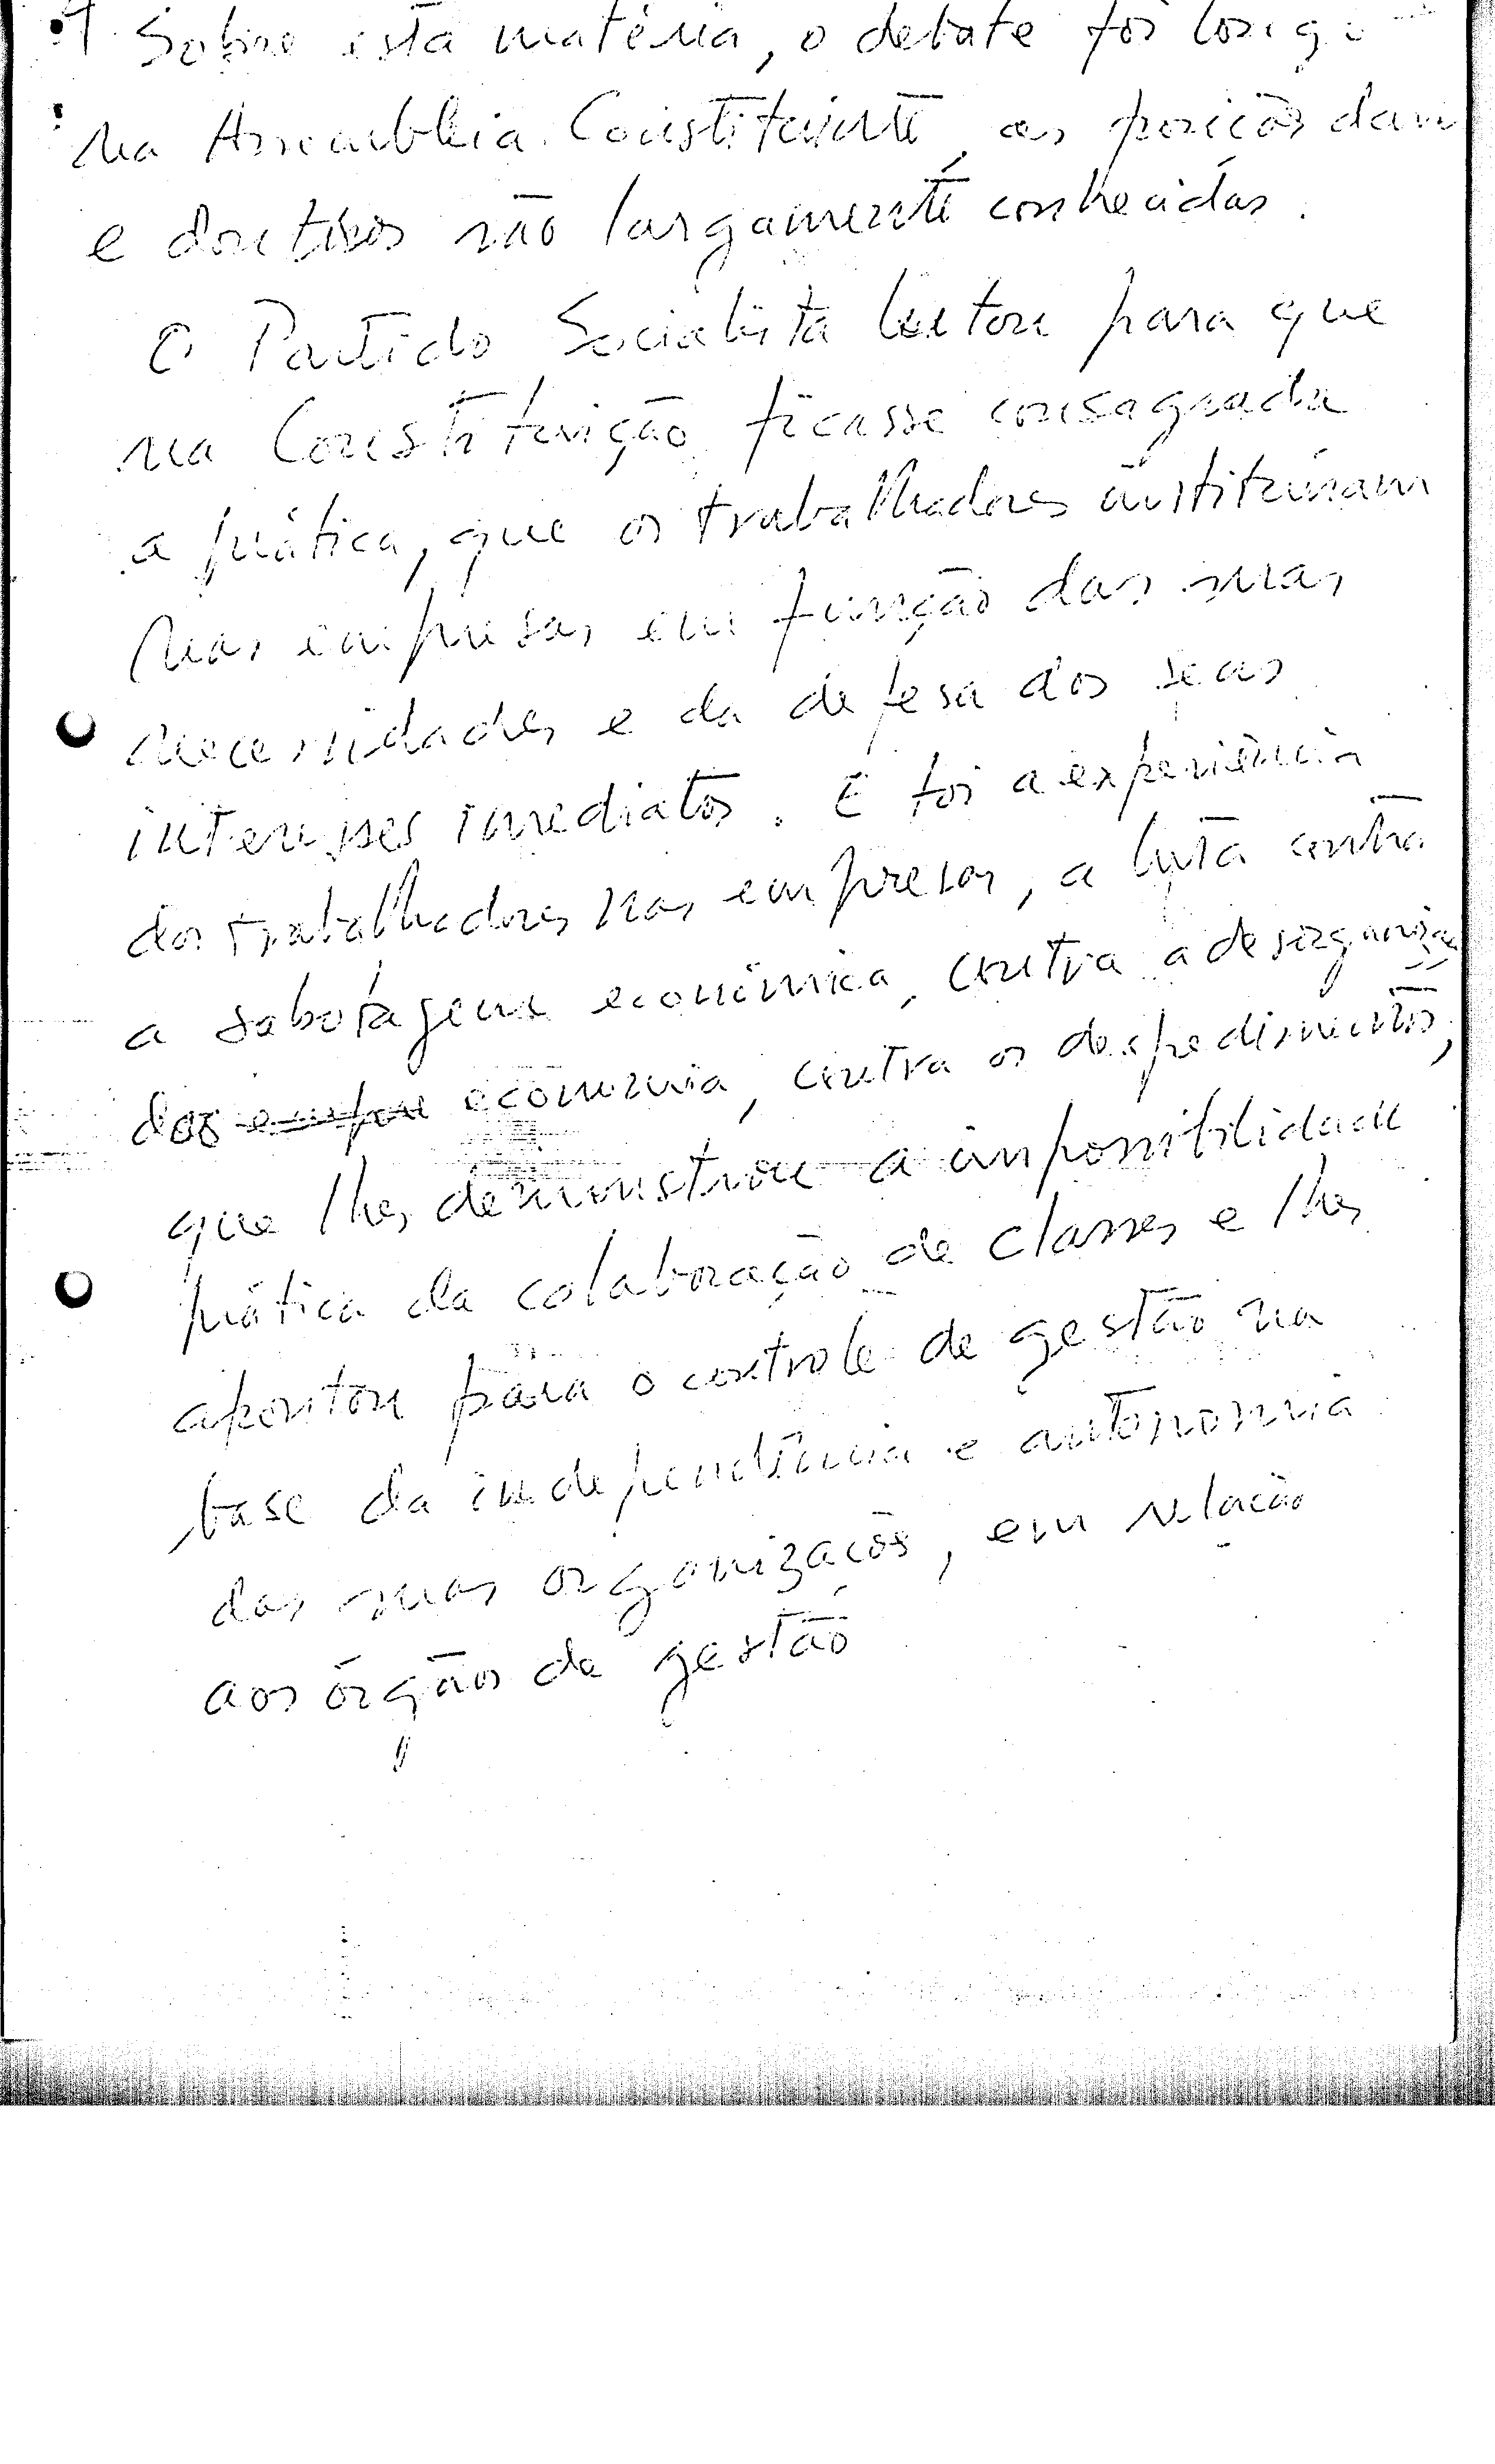 Sobre esta matéria, o debate foi longo
na Assembleia Constituinte, as posições dum
e doutros são largamente conhecidas.
O Partido Socialista lutou para que
na Constituição ficasse consagrada
a prática, que os trabalhadores instituíram
nas empresas em função das suas
necessidades e da defesa dos seus
interesses imediatos. E foi a experiência
dos trabalhadores nas empresas, a luta contra
a sabotagem económica, contra a desorganização
das empre economia, contra os despedimentos,
que lhes demonstrou a impossibilidade
prática da colaboração de classes e lhes
apontou para o controle de gestão na
base da independência e autonomia
das suas organizações, em relação
aos órgãos de gestão